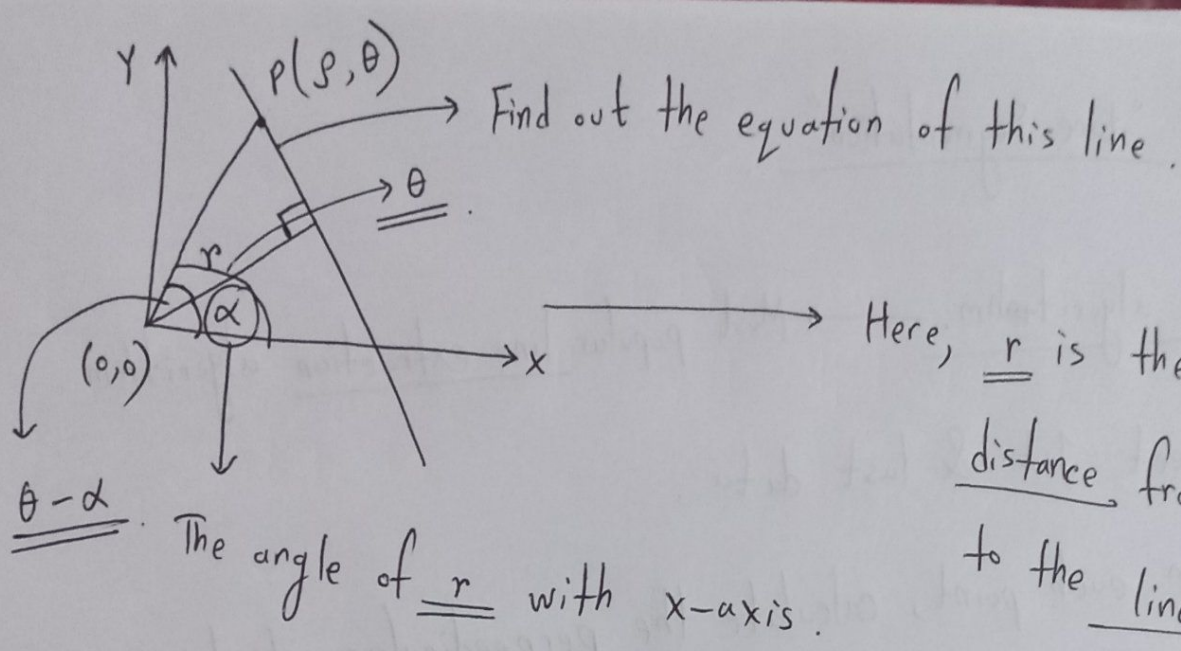 Y
P(ρ,θ)
Find out the equation of this line.
θ
r
α
(0,0)
x
Here, r is the
distance
to the
θ-α. The angle of r with x-axis.